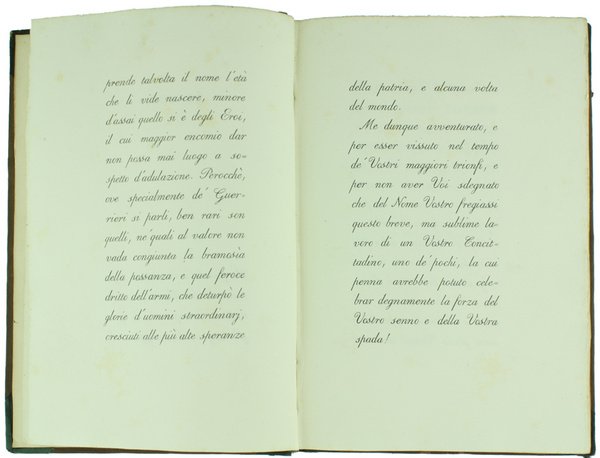 prende talvolta il nome l'età
che li vide nascere, minore
d'assai quello si è degli Eroi,
il cui maggior encomio dar
non possa mai luogo a so-
spetto d'adulazione. Perocchè,
ove specialmente de' Guer-
rieri si parli, ben rari son
quelli, ne' quali al valore non
vada congiunta la bramosìa
della possanza, e quel feroce
dritto dell'armi, che deturpò le
glorie d'uomini straordinarj,
cresciuti alle più alte speranze
della patria, e alcuna volta
del mondo.
Me dunque avventurato, e
per esser vissuto nel tempo
de' Vostri maggiori trionfi, e
per non aver Voi sdegnato
che del Nome Vostro fregiassi
questo breve, ma sublime la-
voro di un Vostro Concit-
tadino, uno de' pochi, la cui
penna avrebbe potuto cele-
brar degnamente la forza del
Vostro senno e della Vostra
spada!